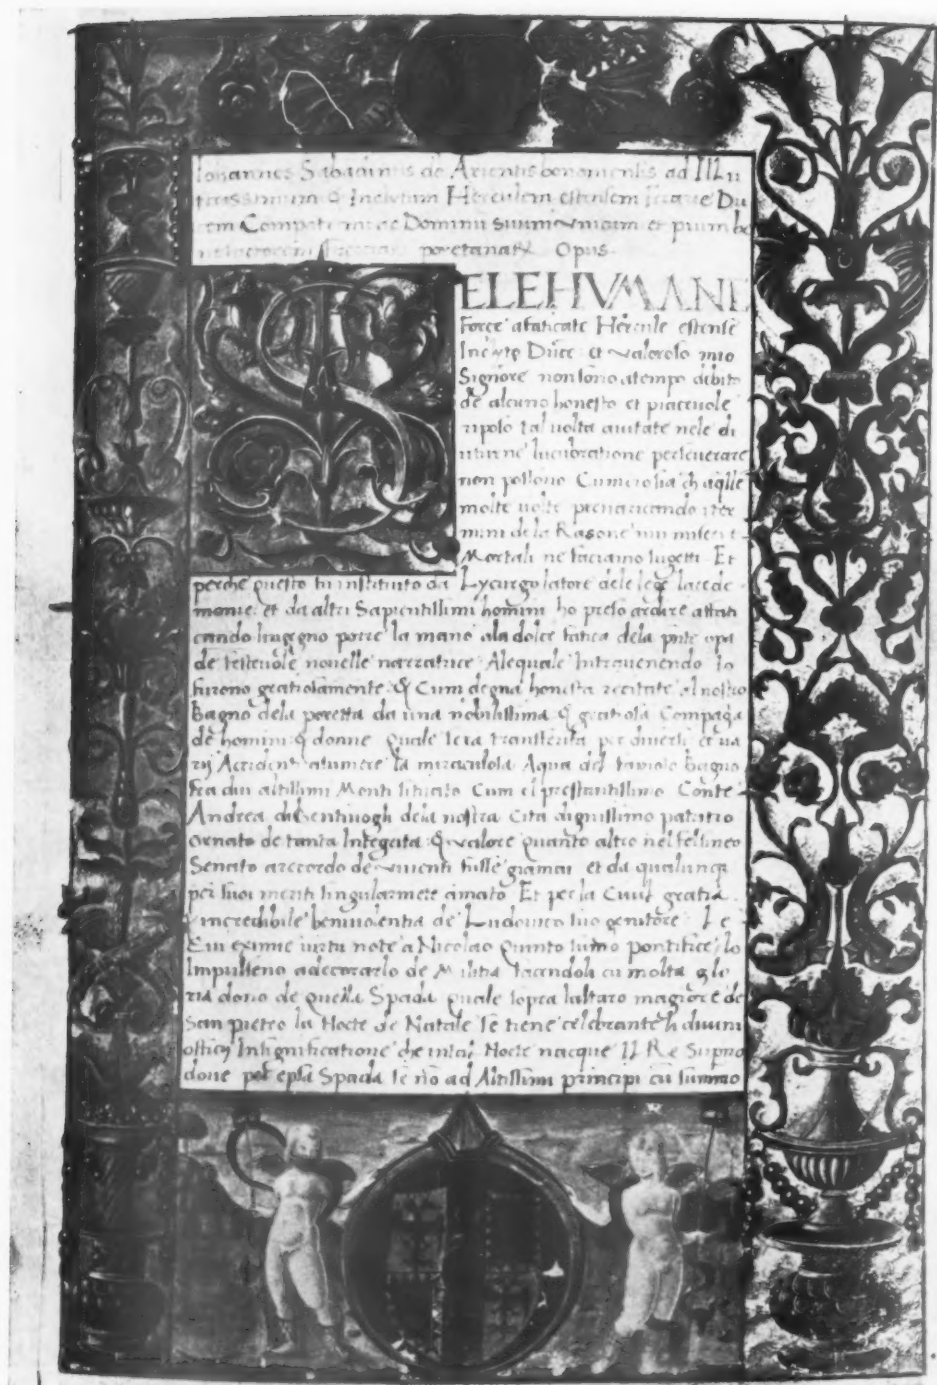 Iohannes Sabadinus de Arientis bononiensis ad Illu
trissimum & Inclitum Herculem estensem Ferrarie Du
cem Compatrem ac Dominum suum unicum et pium be
poretanarum Opus.
SELE HVMANE
Force afaticate Hercule estense
Inclyto Duce et valoroso mio
Signore non sono atempo debito
de alcuno honesto et piacevole
riposo tal volta aiutate nele di
uturne lucubratione perseverare
non possono Cum cio sia ch aqlle
molte volte prevaricando i ter
mini de la Rasone nui miseri
Mortali ne faciamo sugetti. Et
perche questo fu instituito da Lycurgo latore dele lege lacede
monie: et da altri Sapientissimi homini ho preso ardire affati
cando lingegno porre la mano ala dolce fatica dela pnte opa
de festevole novelle narratrice Alequale Intravenendo Io
furono gratiosamente & Cum degna honesta recitate al nostro
Bagno dela poretta da una nobilissima & gratiosa Compagia
de homini & donne quale sera transferita per diversi et va
rij Accidenti asumere la miraculosa Aqua del famoso bagno
fra dui altissimi Monti situato Cum el prestantissimo Conte
Andrea di Bentivogli dela nostra Cita dignissimo patritio
ornato de tanta Integrita & valore quanto altro nel felsineo
Senato arecordo de viventi fusse giamai et da qualunqe
per suoi meriti singularmete amato Et per la Civil gratia
& incredibile benivolentia de Ludovico suo genitore Le
Cui eximie virtu note a Nicolao Quinto sumo pontifice lo
Impulseno adecorarlo de Militia facendoli cu molta glo
ria dono de quella Spada quale sopra laltaro magiore de
San pietro la Nocte de Natale se tiene celebrante li divini
officij In significatione che in tal Nocte nacque Il Re Supno
dove per epsa Spada se no ad Altissimi principi cu summo